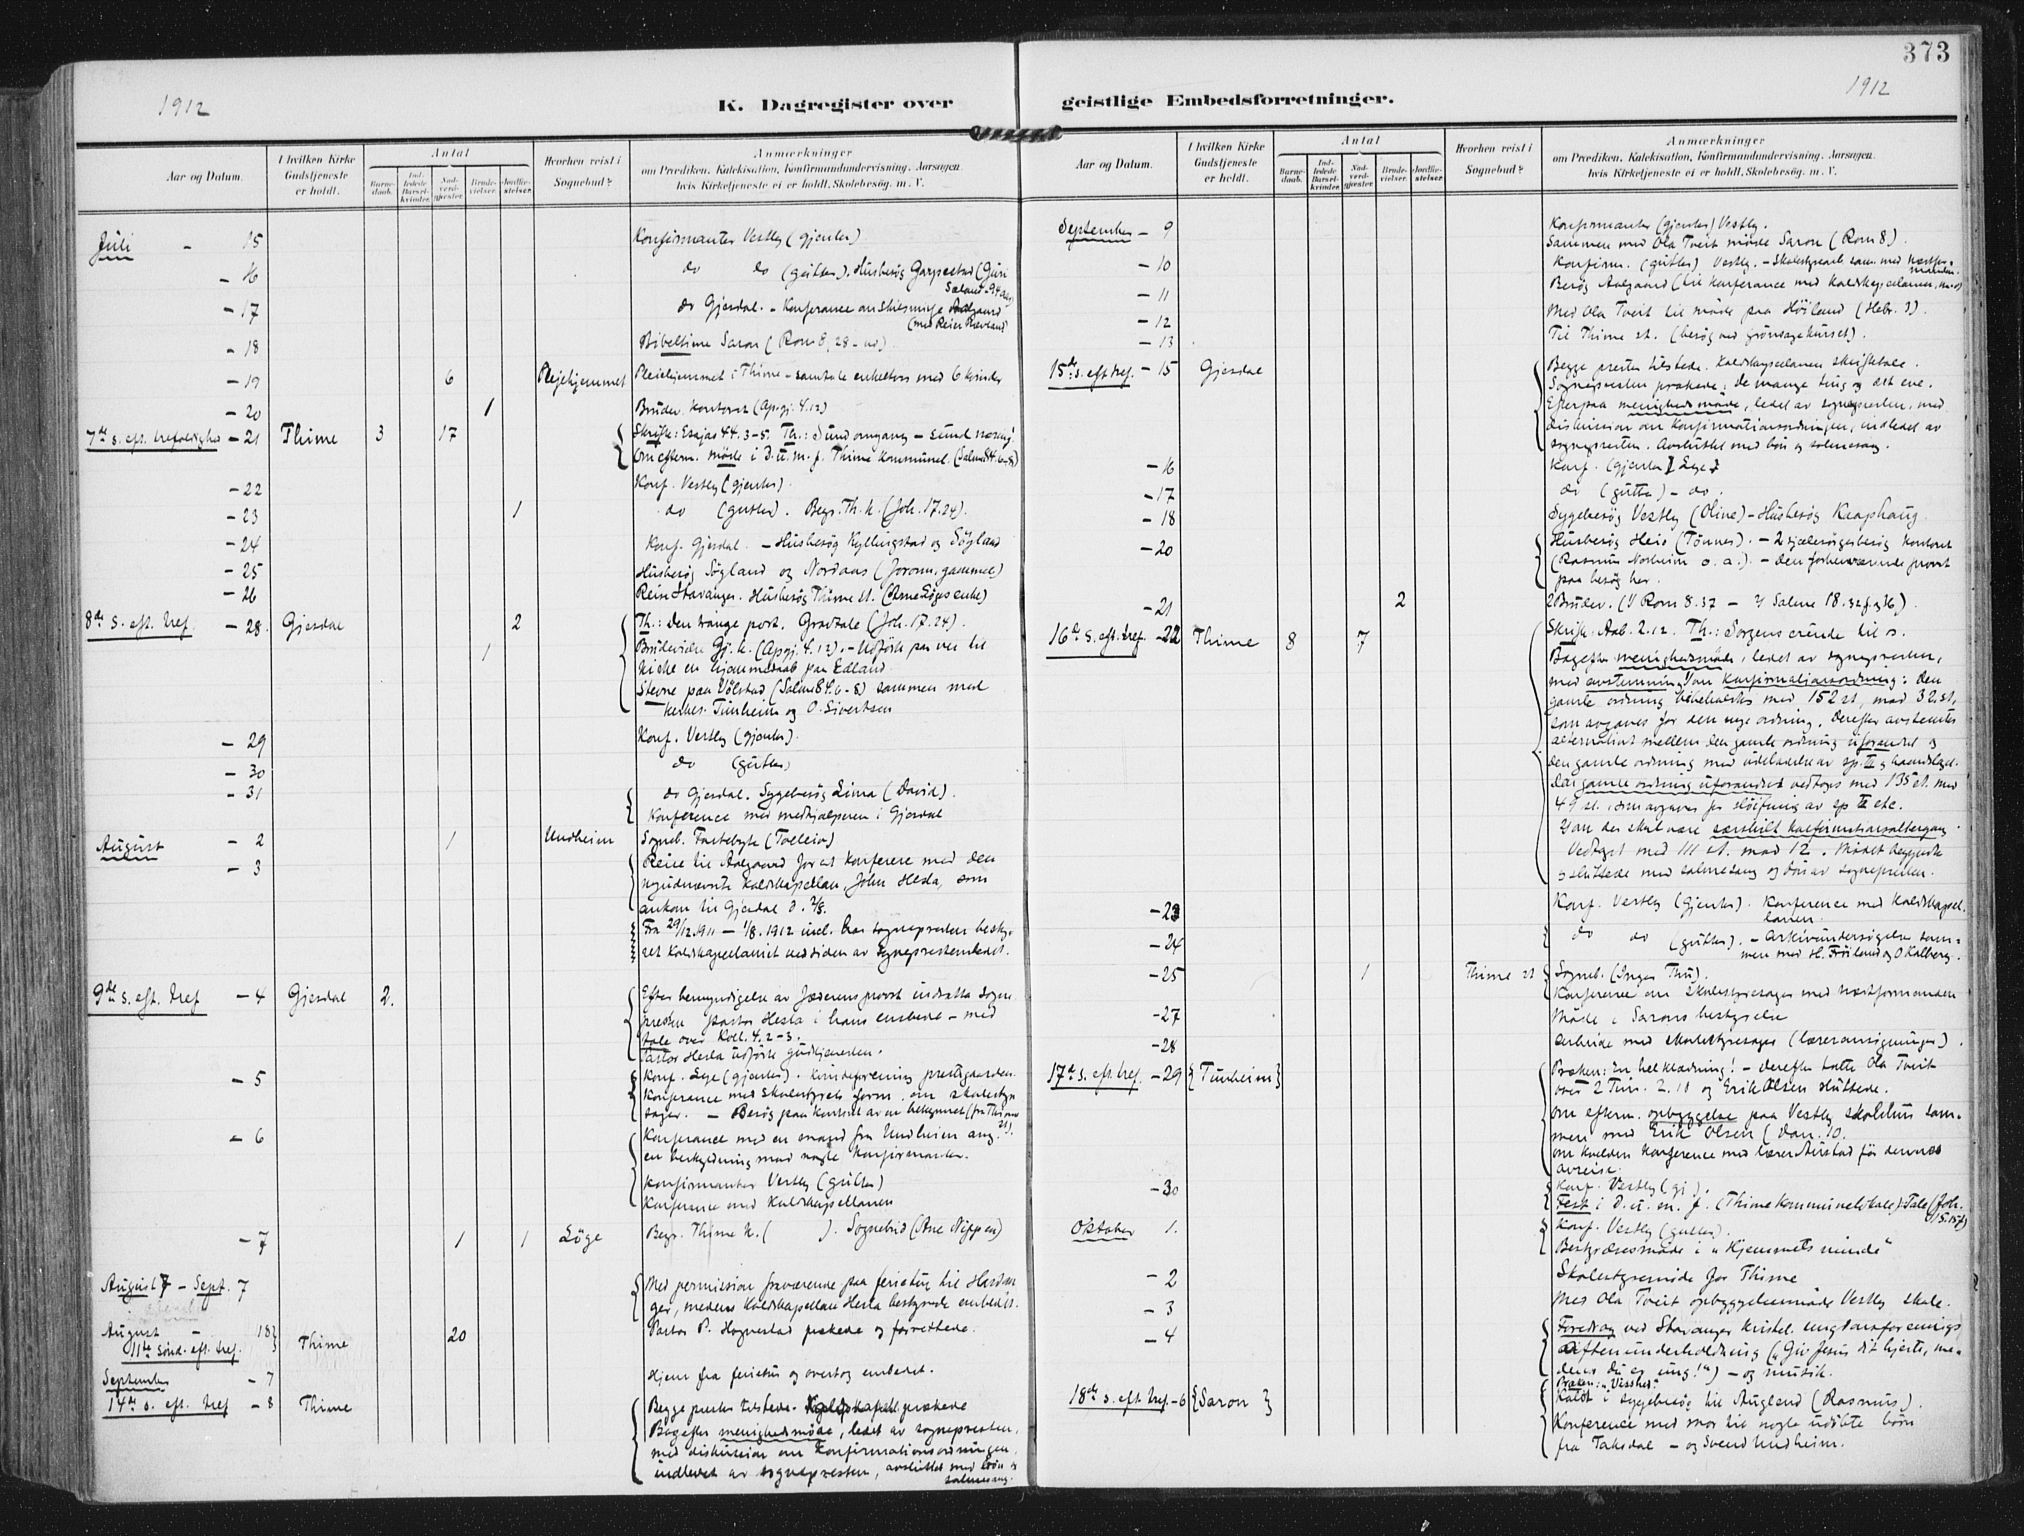 373
1912
1912
K. Dagregister over geistlige Embedsforretninger.
Aar og Datum.
I hvilken Kirke Gudstjeneste er holdt.
Antal
Barne-daab.
Ind-ledede Barsel-kvinder.
Nad-verd-gjester.
Brude-vielser.
Jordfæ-stelser.
Hvorhen reist i Sognebud?
Anmærkninger
om Prædiken, Katekisation, Konfirmandundervisning, Aarsagen,
hvis Kirketjeneste ei er holdt, Skolebesøg. m. V.
Juli - 15 Konfirmanter Vestly (gjenter)
- 16 do do (gutter). Husbesøg Garpestad (Guri
- 17 do Gjesdal. - Konferance
- 18 Bibeltime Saron (Rom 8, 28 -
- 19 6 Plejehjemmet Pleiehjemmet i Thime - samtale enkeltvis med 6 kvinder
- 20 1 Brudev. Kontoret (Apgj. 4.12)
7de s. eft. trefoldighed - 21 Thime 3 17 Skrift: Esajas 44. 3-5. Th.: Sund omgang - sund næring.
Om efterm. møde i D.u.m.f. Thime Kommunel. (Salme 84. 6-8)
- 22 Konf. Vestly (gjenter).
- 23 1 do (gutter). Begr. Th. k. (Joh. 17.24).
- 24 Konf. Gjesdal. - Husbesøg Kyllingstad og Søyland
- 25 Husbesøg Søyland og Nordaas (Joronn, gammel)
- 26 Rein Stavanger. Husbesøg Thime st.
8de S. eft. tref. - 28 Gjesdal 2 Th.: Den trange port. Gravtale (Joh. 17.24).
1 Brudevielse Gj. k. (Apgj. 4.12). - Udførte paa vei til
kirke en hjemmedaab paa Edland.
Stevne paa Vølstad (Salme 84. 6-8) sammen med
Tunheim og O. Sivertsen
- 29 Konf. Vestly (gjenter).
- 30 do (gutter)
- 31 do Gjesdal. Sygebesøg Lima (David).
Konference med medhjælperen i Gjesdal
August - 2 1 Undheim Sogneb. Tartebyte
- 3 Reise til Aalgaard for at konferere med den
nyudnævnte Kaldskapellan, John Hesla, som
ankom til Gjesdal d. 2/8.
Fra 29/12 1911 - 1/8. 1912 incl. har sognepresten besty-
ret Kaldskapellaniet ved siden av Sogneprestembedet.
9de s. eft. tref - 4 Gjesdal 2. Efter bemyndigelse av Jæderens provst indsatte sogne
presten pastor Hesla i hans embede - med
tale over Koll. 4. 2-3.
Pastor Hesla udførte gudstjenesten.
- 5 Konf. Lye (gjenter). Kvindeforening prestgaarden.
Konference med Skolestyrets form. om skolesty
sager. - Besøg paa Kontoret av en bekymret (fra Thime
st).
- 6 Konferance med en mand fra Undheim ang.
en beskyldning mod nogle Konfirmanter.
Konfirmanter Vestly (gutter)
Konference med Kaldskapellanen
- 7 1 1 Løge Begr. Thime k. ( ). Sognebud (Ane Nippen)
August 7 - Sept. 7 Med permission fraværende paa ferietur til Hardan
ger, medens Kaldskapellan Hesla bestyrede embedet.
August - 18 Thime 20 Pastor P. Hognestad prekede og forrettede.
11te sønd. eft. tref.
September - 7 Hjem fra ferietur og overtog embedet.
14de s. eft. tref - 8 Thime Begge prester tilstede. Kaldskapell. prækede
Bagefter menighedsmøde, ledet av sognepresten,
med diskussion om Konfirmationsordningen,
indledet av sognepresten, avsluttet med bøn og
salmesang.
September - 9 Konfirmanter (gjenter) Vestly.
Sammen med Ola Tveit møde Saron (Rom 8).
- 10 Konfirm. (gutter) Vestly. - Skolestyrearb. sam. med næstfor-
manden.
- 11 Besøg Aalgaard (til konferance med Kaldskapellanen,
- 12 Med Ola Tveit til møde paa Høiland (Hebr. 3).
- 13 Til Thime st. (besøg ved grønsagekurset).
15de s. eft. tref. - 15 Gjesdal Begge prester tilstede. Kaldskapellanen skriftetale.
Sognepresten prækede: De mange ting og det ene.
Efterpaa menighedsmøde, ledet av sognepresten, med
diskussion om Konfirmationsordningen, indledet av
sognepresten. Avsluttet med bøn og salmesang.
- 16 Konf. (gjenter) Lye
- 17 do (gutter) - do.
- 18 Sygebesøg Vestly (Oline) - Husbesøg Kraphaug
- 20 Husbesøg Heio (Tønnes). - 2 sjælesørgerbesøg kontoret
(Rasmus Norheim o. a.). - Den forhenværende provst
paa besøg her.
- 21 2 2 Brudev. (1) Rom 8. 37 - 2) Salme 18.
16de s. eft. tref. - 22 Thime 8 7 Skrift: Aab. 2.12. Th.: Sorgens ærinde til os.
Bagefter menighedsmøde, ledet av sognepresten,
med avstemning 1) om konfirmationsordning: Den
gamle ordning bibeholdes med 152 st. mod 32 st,
som avgaves for den nye ordning. Derefter avstemtes
alternativt mellem den gamle ordning uforandret og
den gamle ordning med udeladelse av sp. II og haandslaget.
Den gamle ordning uforandret vedtoges med 135 st. mod
49 st. som avgaves for sløifning av sp II etc.
2) om der skal være særskilt konfirmationsaltergang
Vedtaget med 111 st. mod 12. Mødet begyndte
og sluttede med salmesang og bøn av sognepresten.
- 23 Konf. Vestly (gjenter). Konference med Kaldskapel-
lanen.
- 24 do do (gutter). - Arkivundersøgelse sam-
men med H. Frøiland og O Kalberg.
- 25 1 Thime st Sogneb. (Inger Thu).
Konferense om skolestyresager med næstformanden
- 27 Møde i Sarons bestyrelse
- 28 Arbeide med skolestyresager (læreransøgninger).
17de s. eft. tref. - 29 {Tunheim} Præken: En hel klædning! - Derefter talte Ola Tveit
over 2 Tim. 2. 11 og Erik Olsen sluttede.
Om efterm. opbyggelse paa Vestly skolehus sam-
men med Erik Olsen (Dan. 10.
Om kvelden konference med lærer Austad før dennes
avreise
- 30 Konf. Vestly (gj).
Fest i D. u. m. f. (Thime Kommunelokale). Tale (Joh.
15. 15f)
Oktober 1. Konf. Vestly (gutter).
Bestyrelsesmøde i "Hjemmets minde"
- 2 Skolestyremøde for Thime
- 3 Med Ola Tveit opbyggelsesmøde Vestly skole.
- 4 Foredrag ved Stavanger kristel. ungdomsforenings
Aftenunderholdning ("Giv Jesus dit hjerte, me-
dens du er ung!") - og musik.
18de s. eft. tref. - 6 {Saron} Præken: "Visshet".
Kaldt i sygebesøg til Augland (Rasmus).
Konference med mor til nogle udøbte børn
fra Taksdal - og Svend Undheim.